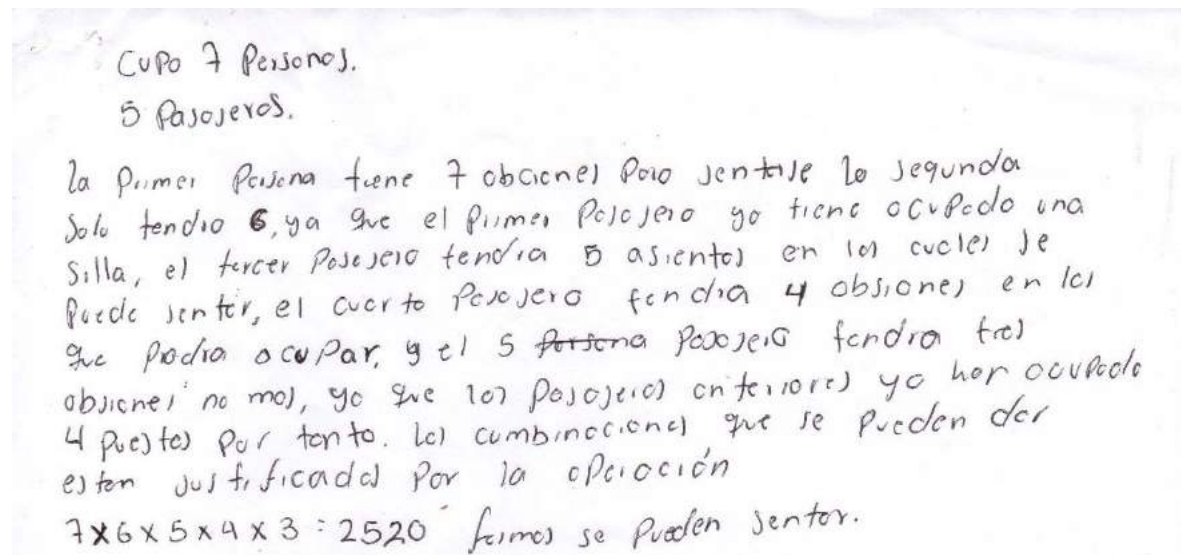 Cupo 7 Personas.
5 Pasajeros.
la primer Persona tiene 7 obciones Para sentarse la segunda
Solo tendra 6, ya que el primer Pasajero ya tiene ocupado una
Silla, el tercer Pasajero tendria 5 asientos en los cuales se
Puede sentar, el cuarto Pasajero tendria 4 obsiones en las
que Podra ocupar, y el 5 Persona Pasajero tendra tres
obsiones no mas, ya que los Pasajeros anteriores ya han ocupado
4 Puestos Por tanto. las combinaciones que se Pueden dar
estan justificadas Por la operación
7x6x5x4x3 = 2520 formas se Pueden sentar.